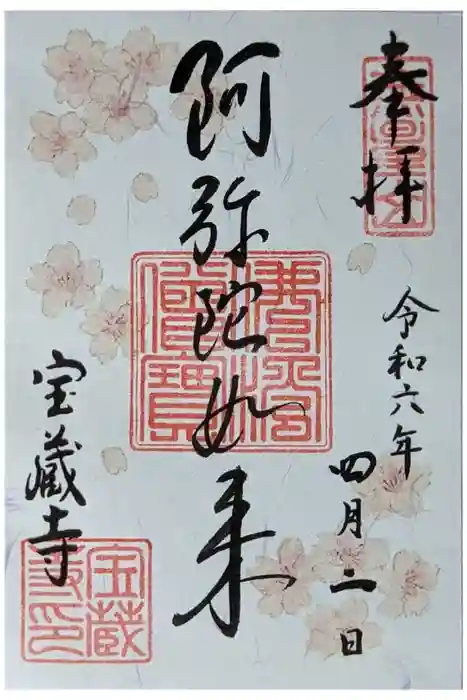 奉拝
令和六年
四月二日
阿弥陀如来
佛法僧寶
宝蔵寺
宝蔵寺印